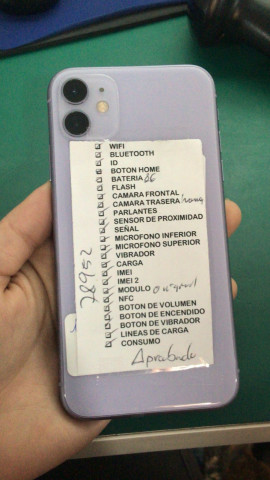 WIFI
BLUETOOTH
ID
BOTON HOME
BATERIA 86
FLASH
CAMARA FRONTAL
CAMARA TRASERA
PARLANTES
SENSOR DE PROXIMIDAD
SEÑAL
MICROFONO INFERIOR
MICROFONO SUPERIOR
VIBRADOR
CARGA
IMEI
IMEI 2
MODULO original
NFC
BOTON DE VOLUMEN
BOTON DE ENCENDIDO
BOTON DE VIBRADOR
LINEAS DE CARGA
CONSUMO
Aprobado
78952